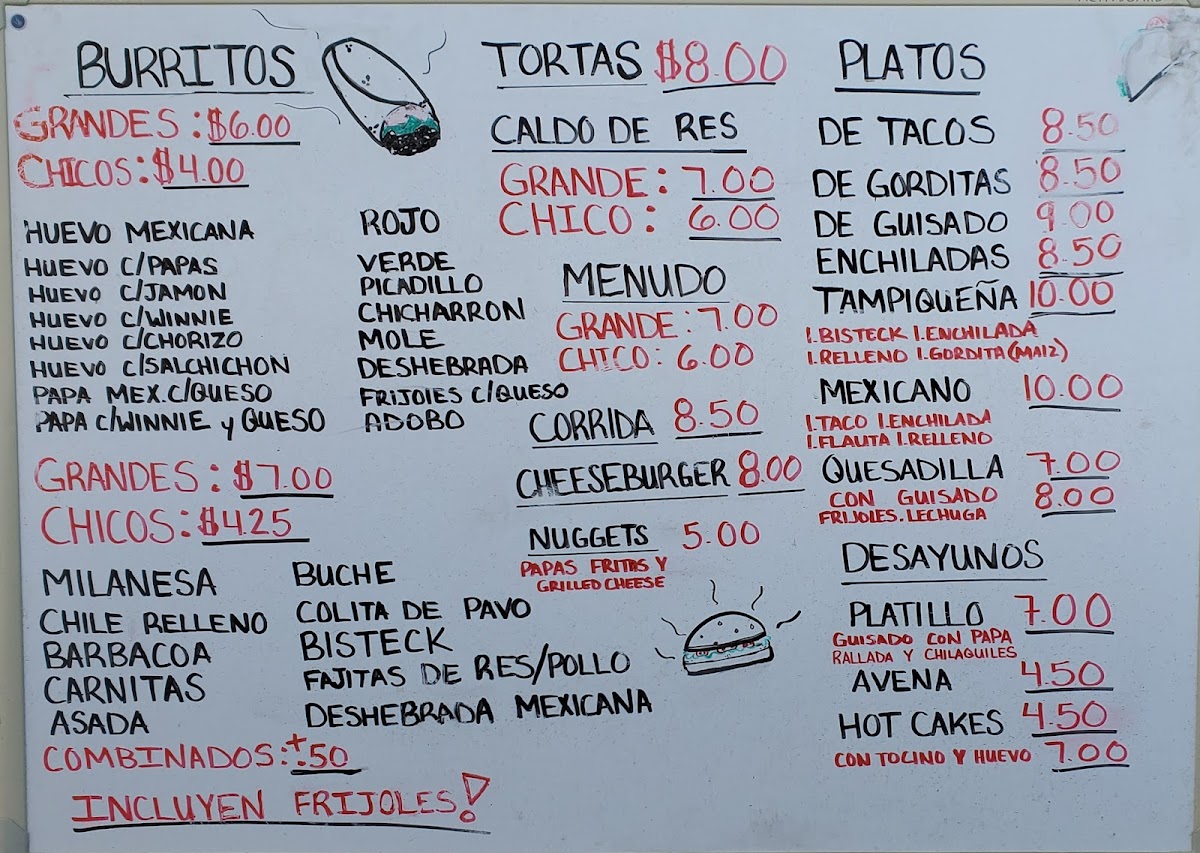 BURRITOS
GRANDES: $6.00
CHICOS: $4.00
HUEVO MEXICANA
HUEVO C/PAPAS
HUEVO C/JAMON
HUEVO C/WINNIE
HUEVO C/CHORIZO
HUEVO C/SALCHICHON
PAPA MEX. C/QUESO
PAPA C/WINNIE y QUESO
ROJO
VERDE
PICADILLO
CHICHARRON
MOLE
DESHEBRADA
FRIJOLES C/QUESO
ADOBO
GRANDES: $7.00
CHICOS: $4.25
MILANESA
CHILE RELLENO
BARBACOA
CARNITAS
ASADA
BUCHE
COLITA DE PAVO
BISTECK
FAJITAS DE RES/POLLO
DESHEBRADA MEXICANA
COMBINADOS: +.50
INCLUYEN FRIJOLES!
TORTAS $8.00
CALDO DE RES
GRANDE: 7.00
CHICO: 6.00
MENUDO
GRANDE: 7.00
CHICO: 6.00
CORRIDA 8.50
CHEESEBURGER 8.00
NUGGETS 5.00
PAPAS FRITAS Y
GRILLED CHEESE
PLATOS
DE TACOS 8.50
DE GORDITAS 8.50
DE GUISADO 9.00
ENCHILADAS 8.50
TAMPIQUEÑA 10.00
1.BISTECK 1.ENCHILADA
1.RELLENO 1.GORDITA (MAIZ)
MEXICANO 10.00
1.TACO 1.ENCHILADA
1.FLAUTA 1.RELLENO
QUESADILLA 7.00
CON GUISADO 8.00
FRIJOLES.LECHUGA
DESAYUNOS
PLATILLO 7.00
GUISADO CON PAPA
RALLADA Y CHILAQUILES
AVENA 4.50
HOT CAKES 4.50
CON TOCINO Y HUEVO 7.00